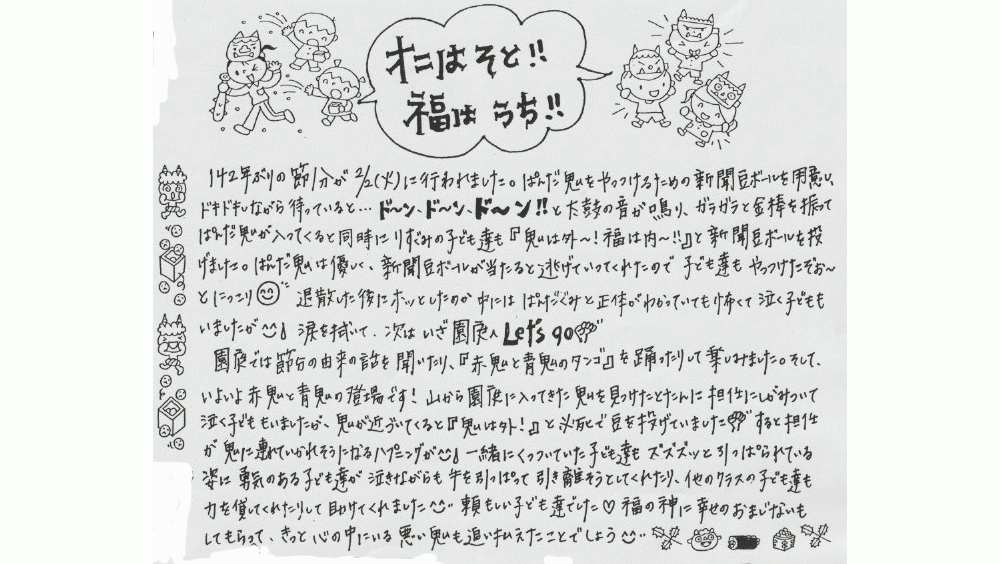 オニは そと!!
福は うち!!
142年ぶりの節分が 2/2(火)に行われました。ぱんだ鬼をやっつけるための新聞豆ボールを用意し、
ドキドキしながら待っていると… ド〜ン、ド〜ン、ド〜ン!! と太鼓の音が鳴り、ガラガラと金棒を振って
ぱんだ鬼が入ってくると同時にりすぐみの子ども達も『鬼は外〜!福は内〜!!』と新聞豆ボールを投
げました。ぱんだ鬼は優しく、新聞豆ボールが当たると逃げていってくれたので 子ども達も やっつけたぞぉ〜
とにっこり 退散した後にホッとしたのか中には ぱんだぐみと正体がわかっていても怖くて泣く子ども
いましたが 涙を拭いて、次は いざ園庭へ Let's go
園庭では節分の由来の話を聞いたり、『赤鬼と青鬼のタンゴ』を踊ったりして楽しみました。そして、
いよいよ赤鬼と青鬼の登場です! 山から園庭に入ってきた鬼を見つけたとたんに担任にしがみついて
泣く子どももいましたが、鬼が近づいてくると『鬼は外!』と必死で豆を投げていました すると担任
が鬼に連れていかれそうになるハプニングが 一緒にくっついていた子ども達もズズズッと引っぱられている
姿に勇気のある子ども達が泣きながらも手を引っぱって引き離そうとしてくれたり、他のクラスの子ども達も
力を貸してくれたりして助けてくれました 頼もしい子ども達でした♡ 福の神に幸せのおまじないも
してもらって、きっと心の中にいる悪い鬼も追い払えたことでしょう